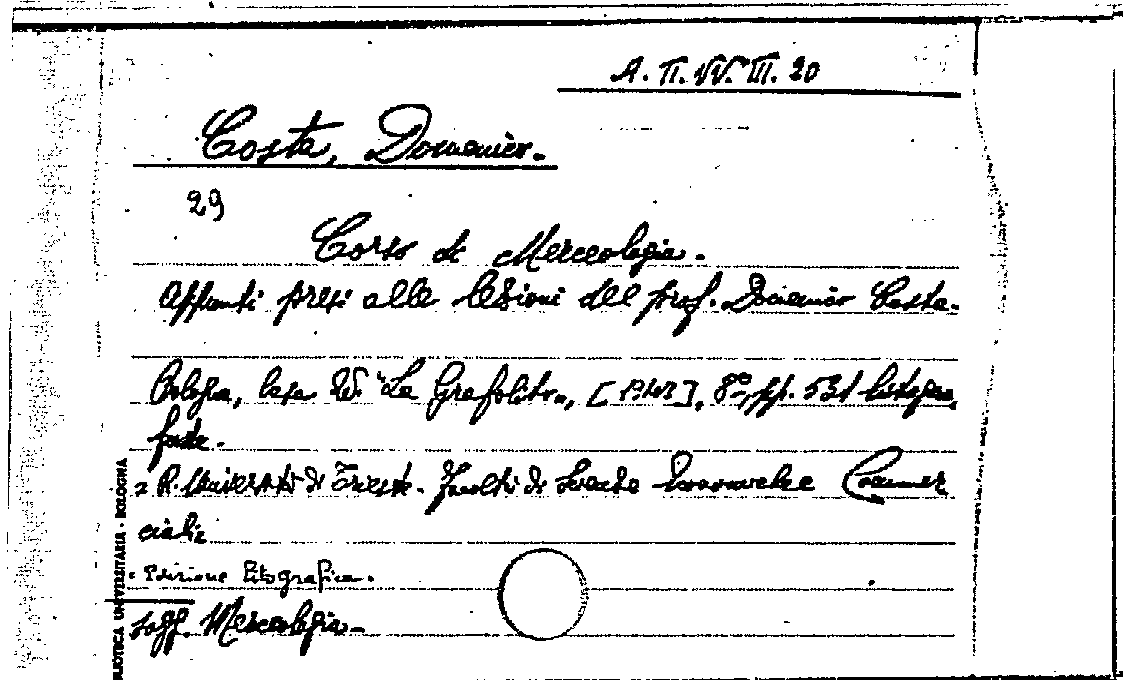 A. П. VV. III. 20
Costa, Domenico.
29
Corso di Merceologia.
Appunti presi alle lezioni del prof. Domenico Costa.
Bologna, Casa Ed. "La Grafolito", 8°, pp. 531 litogra
fate.
R. Università di Trieste. Facoltà di Scienze Economiche Commer
ciali
Edizione litografica.
Sogg. Merceologia
BLIOTECA UNIVERSITARIA - BOLOGNA